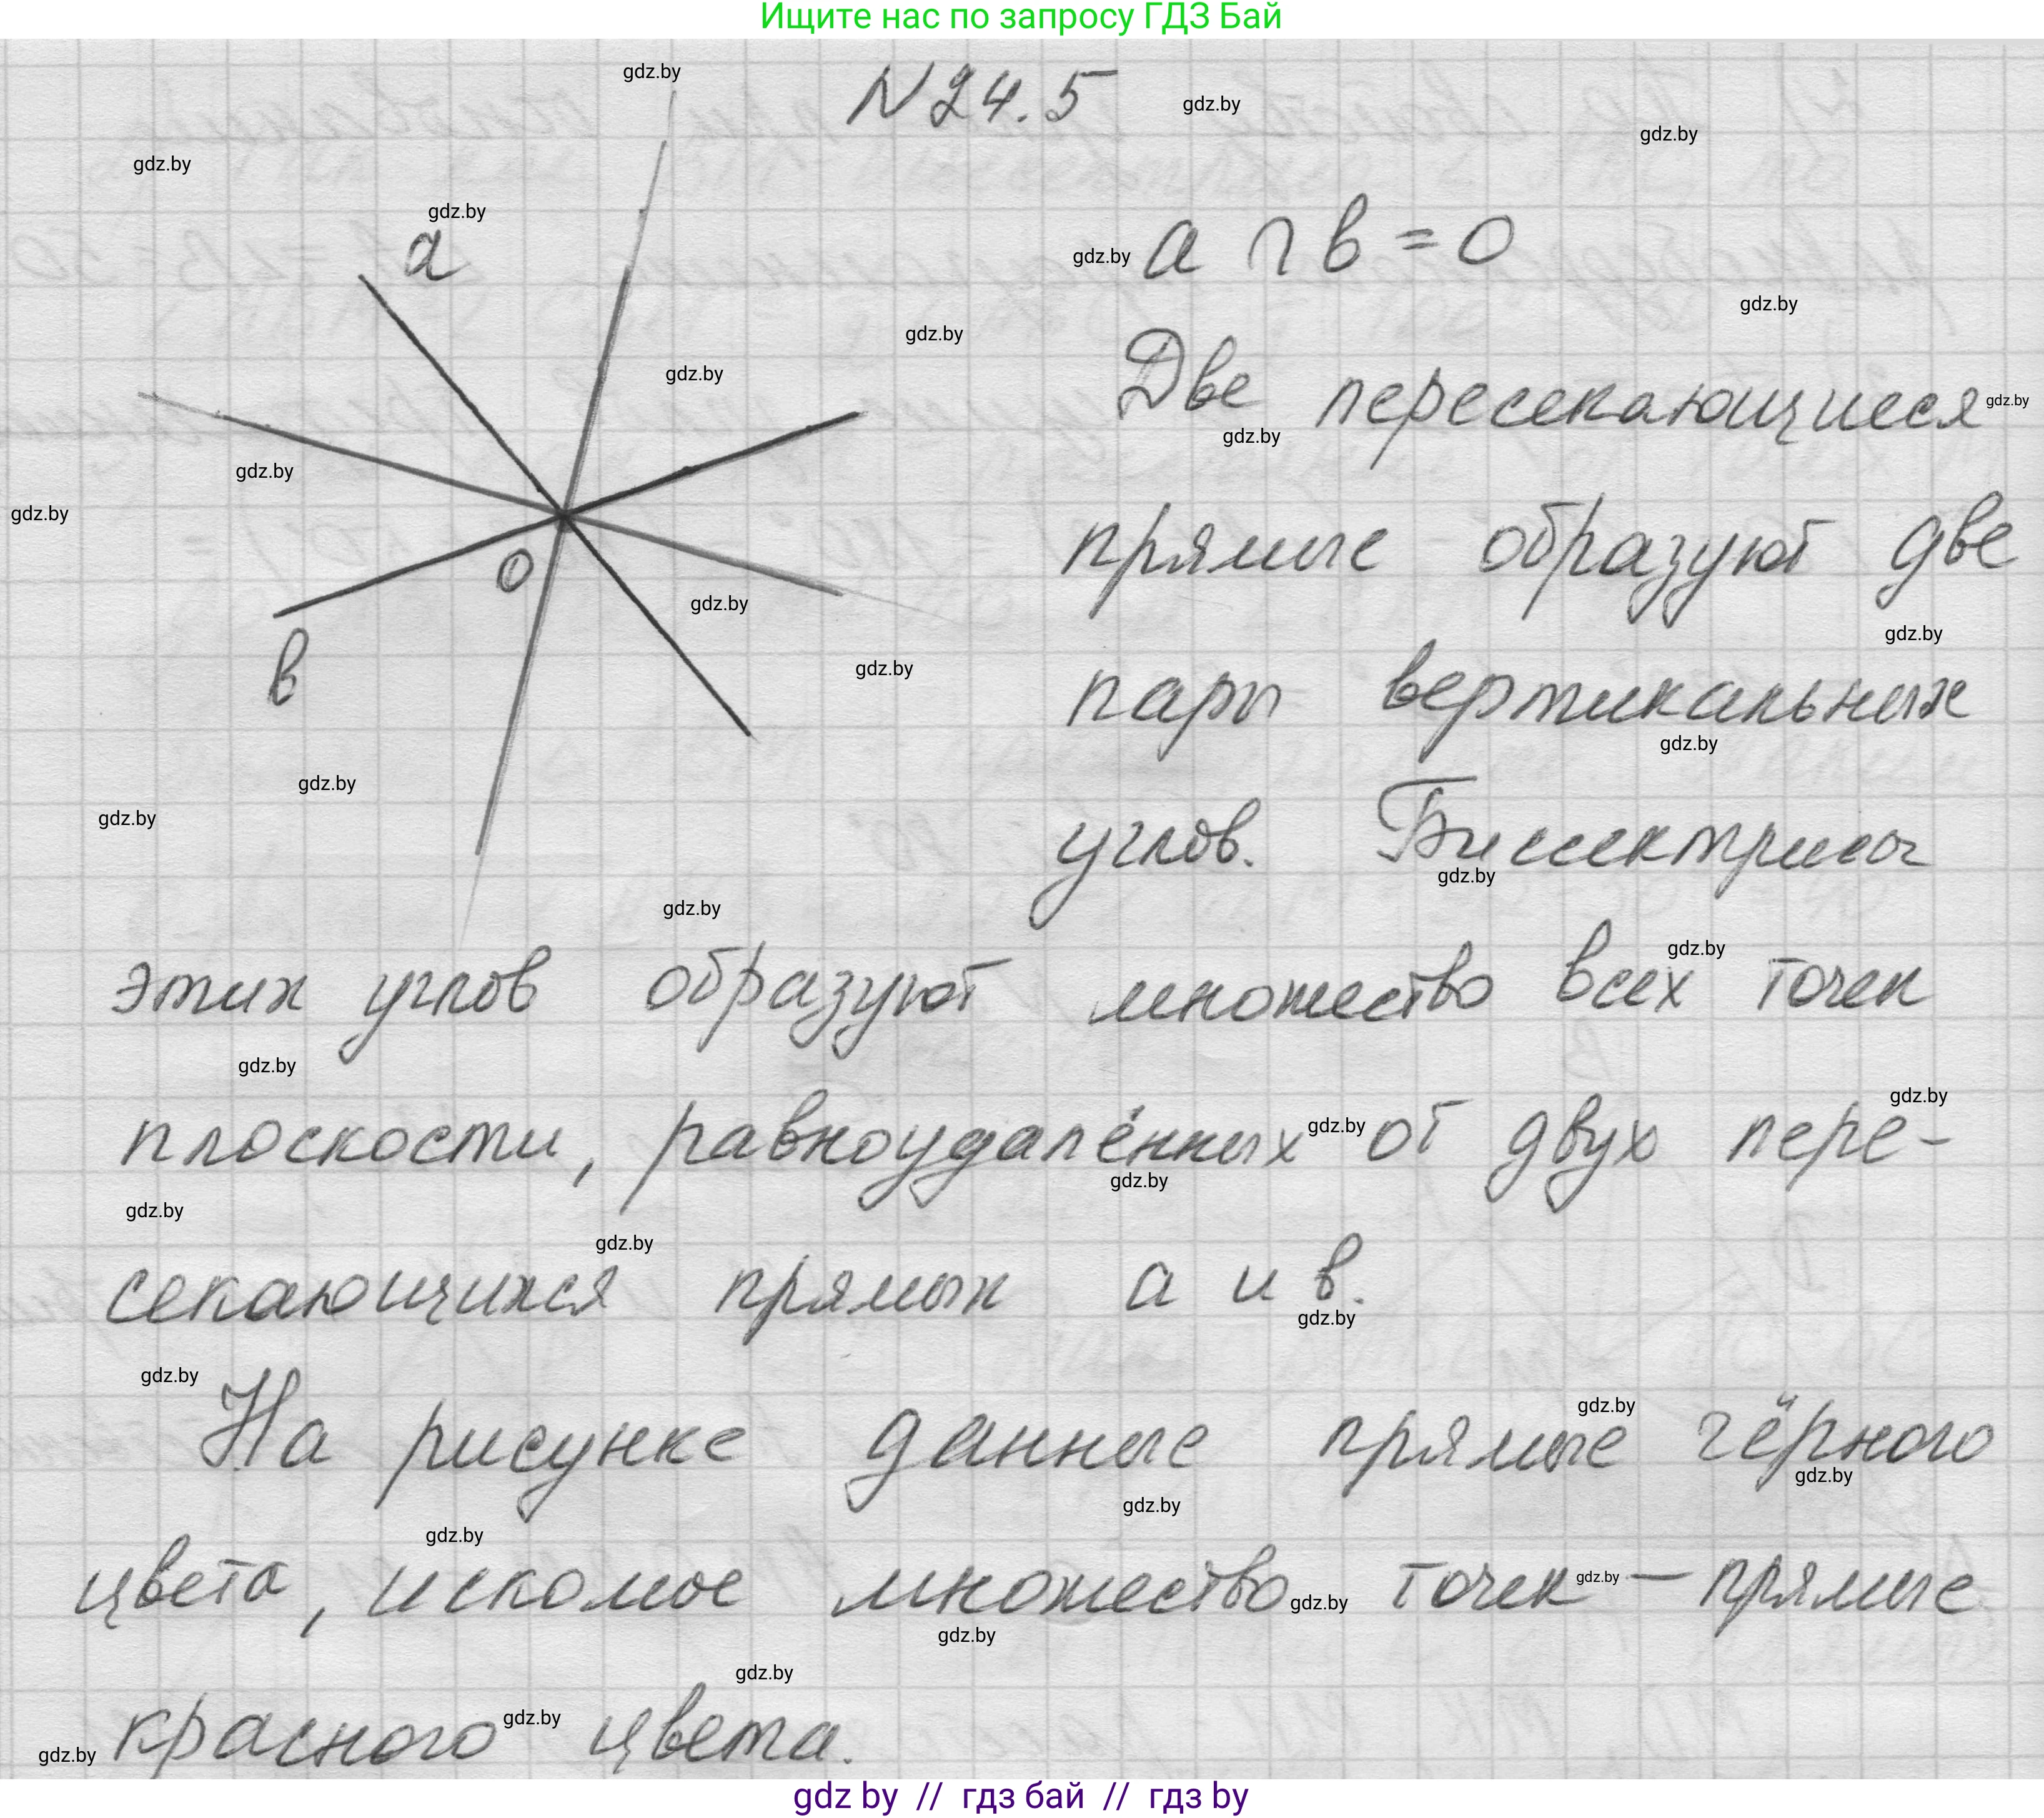 Ищите нас по запросу ГДЗ Бай
N 24.5
a ∩ b = O
a
Две пересекающиеся
прямые образуют две
O
b
пары вертикальных
углов. Биссектрисы
этих углов образуют множество всех точек
плоскости, равноудалённых от двух пере-
секающихся прямых a и b.
На рисунке данные прямые чёрного
цвета, искомое множество точек — прямые
красного цвета.
gdz by // гдз бай // гдз by